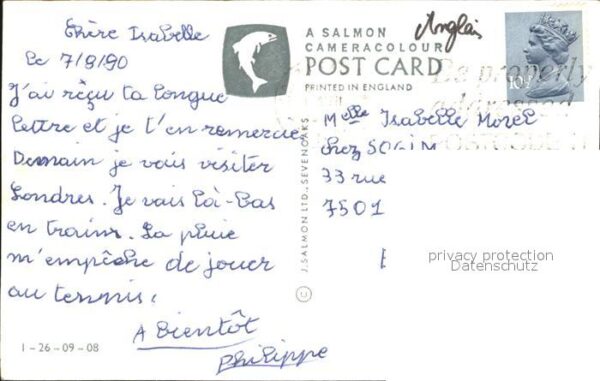 Chère Isabelle
Le 7/8/90
J'ai réçu ta longue
lettre et je t'en remercie
Demain je vais visiter
Londres. Je vais là-bas
en train. La pluie
m'empêche de jouer
au tennis.
A Bientôt
Philippe
1-26-09-08
A SALMON
CAMERACOLOUR
POST CARD
PRINTED IN ENGLAND
© J. SALMON LTD., SEVENOAKS
Anglais
Be properly
addressed
POSTCODE IT
10½P
Melle Isabelle Morel
chez SOGIM
33 rue
7501
privacy protection
Datenschutz